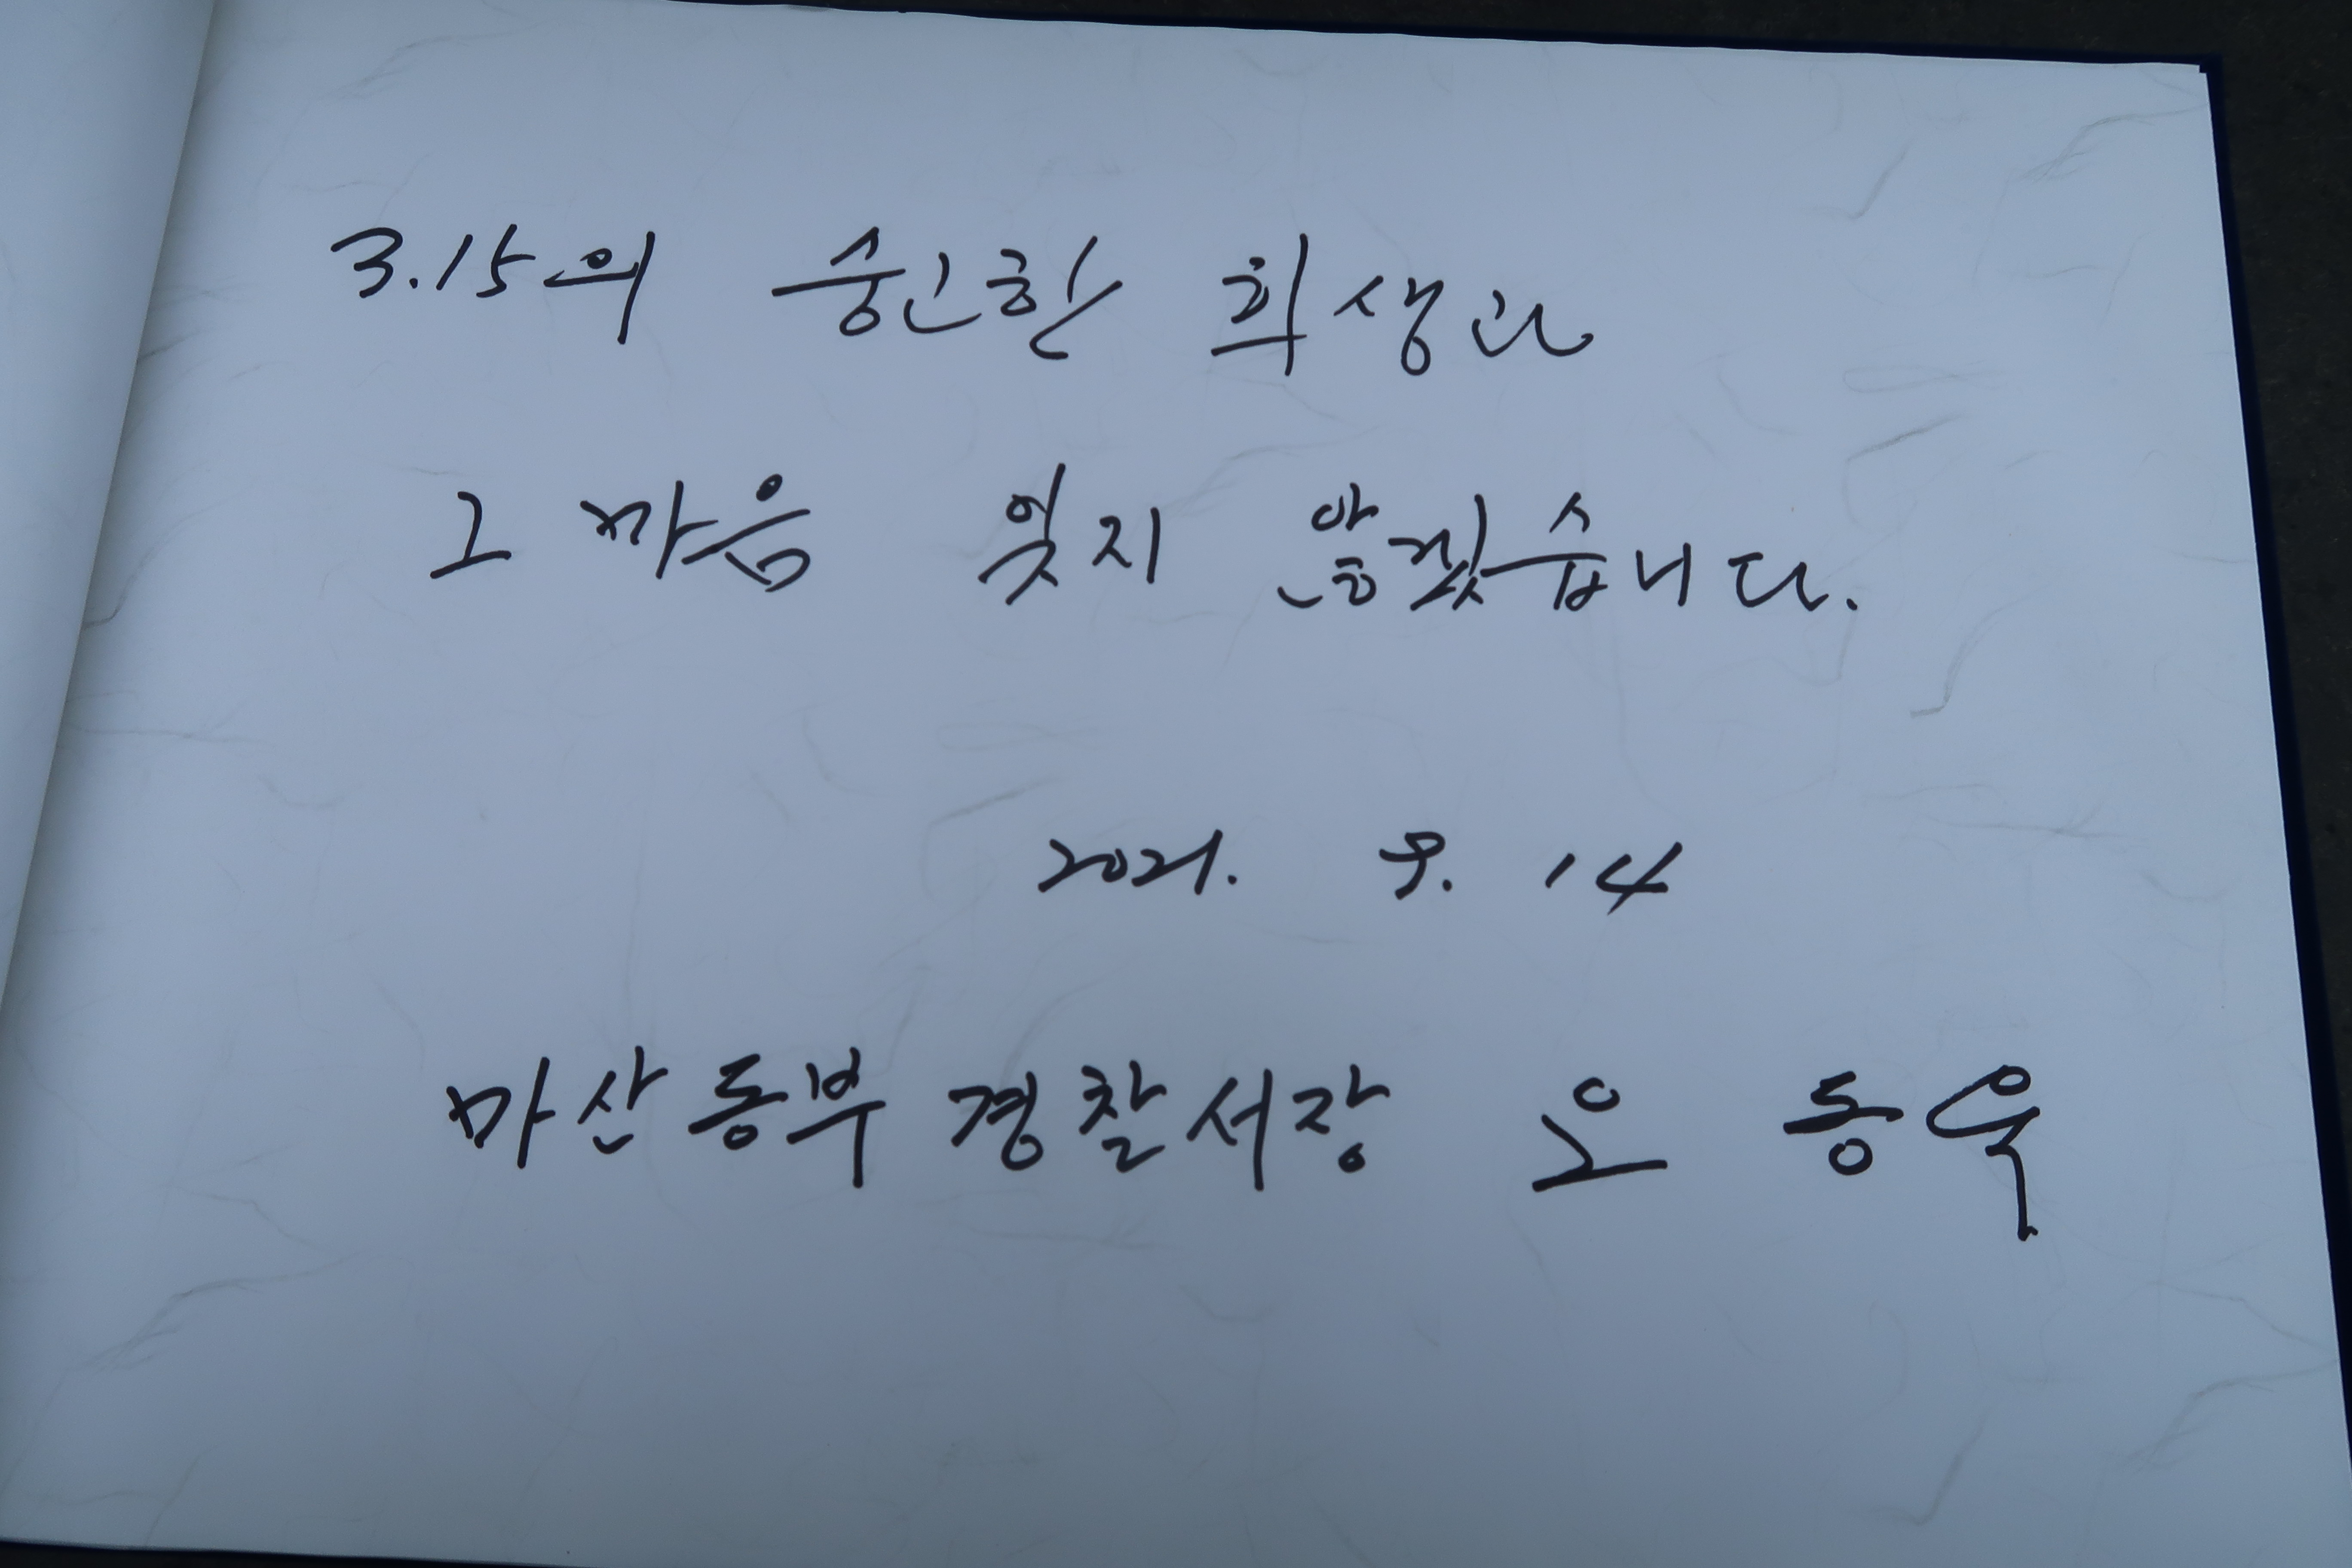 3.15의 숭고한 희생과
그 마음 잊지 않겠습니다.
2021. 14
마산동부경찰서장 오동욱